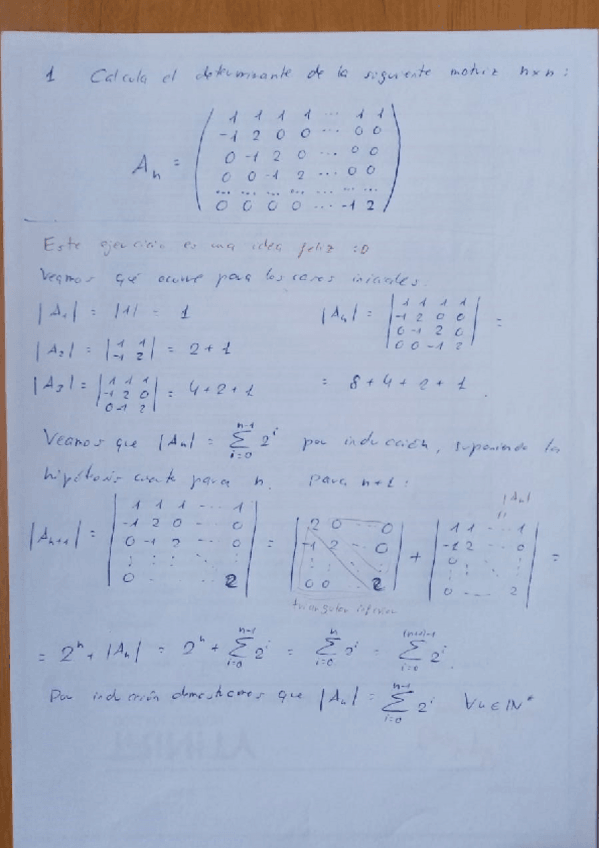 1 Calcula el determinante de la siguiente matriz n×n:
A_n = ( 1 1 1 1 ... 1 1
-1 2 0 0 ... 0 0
0 -1 2 0 ... 0 0
0 0 -1 2 ... 0 0
... ... ... ... ... ... ...
0 0 0 0 ... -1 2 )
Este ejercicio es una idea feliz :D
Veamos qué ocurre para los casos iniciales.
|A_1| = |1| = 1
|A_2| = | 1 1 ; -1 2 | = 2+1
|A_3| = | 1 1 1 ; -1 2 0 ; 0 -1 2 | = 4+2+1
|A_4| = | 1 1 1 1 ; -1 2 0 0 ; 0 -1 2 0 ; 0 0 -1 2 | =
= 8+4+2+1.
Veamos que |A_n| = ∑_{i=0}^{n-1} 2^i por inducción, suponiendo la
hipótesis cierta para n. Para n+1:
|A_n|
||
|A_{n+1}| = | 1 1 1 ... 1 ; -1 2 0 ... 0 ; 0 -1 2 ... 0 ; ... ; 0 ... 2 | = | 2 0 ... 0 ; -1 2 ... 0 ; ... ; 0 0 ... 2 | + | 1 1 ... 1 ; -1 2 ... 0 ; 0 ... ; 0 ... 2 | =
triangular inferior
= 2^n + |A_n| = 2^n + ∑_{i=0}^{n-1} 2^i = ∑_{i=0}^{n} 2^i = ∑_{i=0}^{(n+1)-1} 2^i.
Por inducción demostramos que |A_n| = ∑_{i=0}^{n-1} 2^i ∀n∈ℕ*